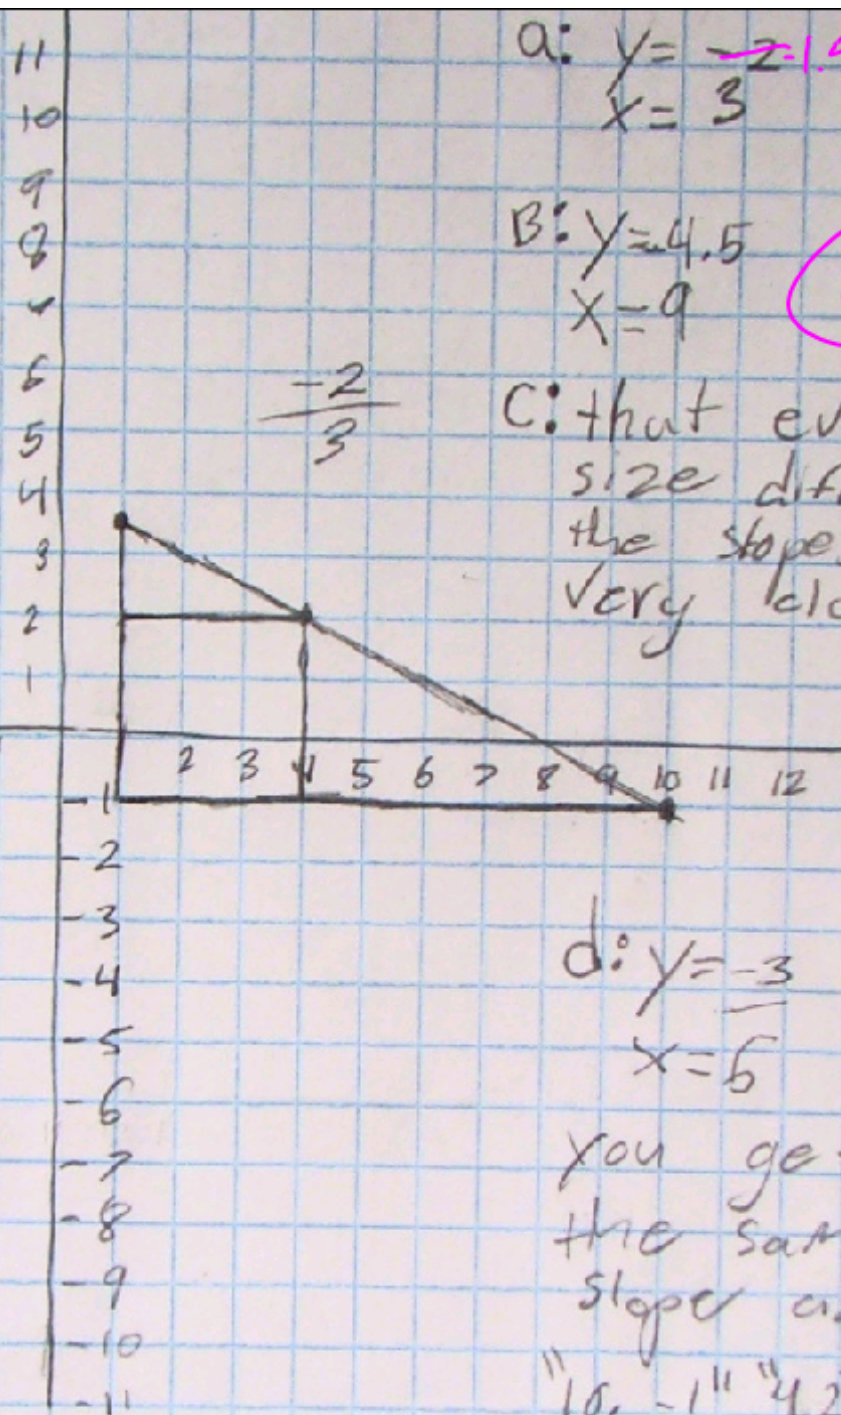 11
10
9
8
7
6
5
4
3
2
1
2 3 4 5 6 7 8 9 10 11 12
-1
-2
-3
-4
-5
-6
-7
-8
-9
-10
-11
-2
3
a: y= -2 -1.
x= 3
B: y=-4.5
x=9
C: that
size
the slope
very
d: y=-3
x=6
you
the
slope
"10, -1" "4,2